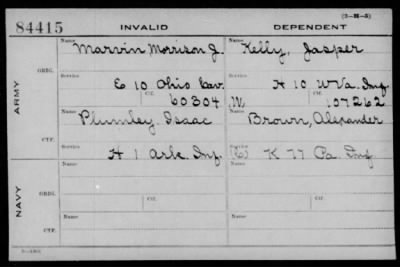 (3-M-5)
84415 INVALID DEPENDENT
Name Name
Marvin Morrison J. Kelly, Jasper
ORIG.
Service Service
E 10 Ohio Cav. H 10 W Va. Inf.
ARMY
Ctf. Ctf.
60304 W. 107262
Name Name
Plumley Isaac Brown, Alexander
Service Service
H 1 Ark. Inf. (E) K 77 Pa. Inf.
Name Name
ORIG.
Service Service
NAVY
Ctf. Ctf.
Name Name